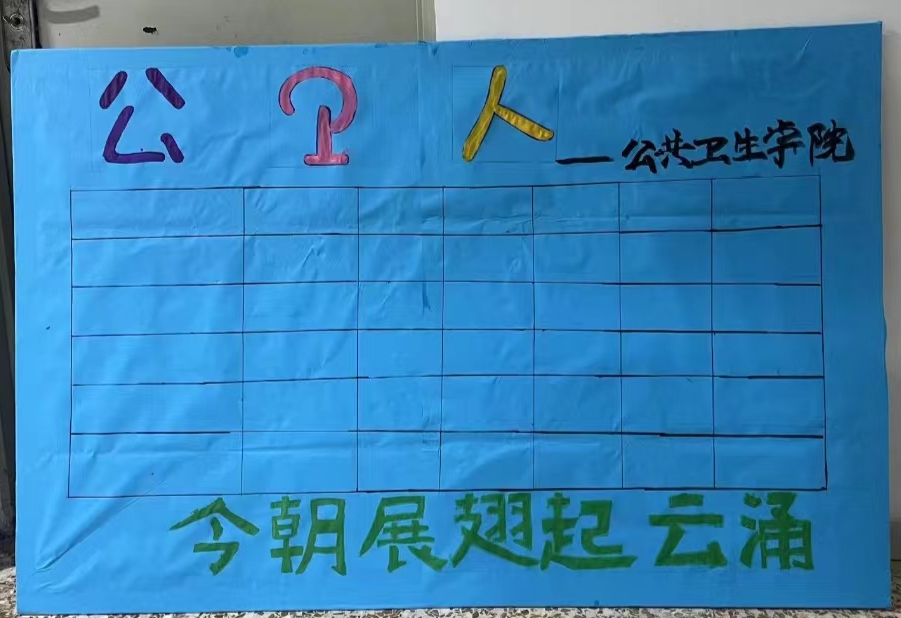 公卫人
—公共卫生学院
今朝展翅起云涌